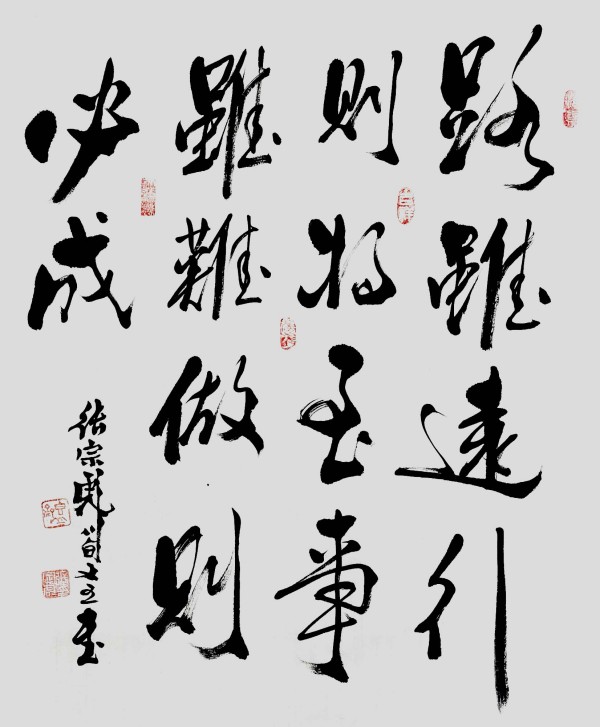 路雖遠行
則將至事
雖難做則
必成
張宗彪旬書